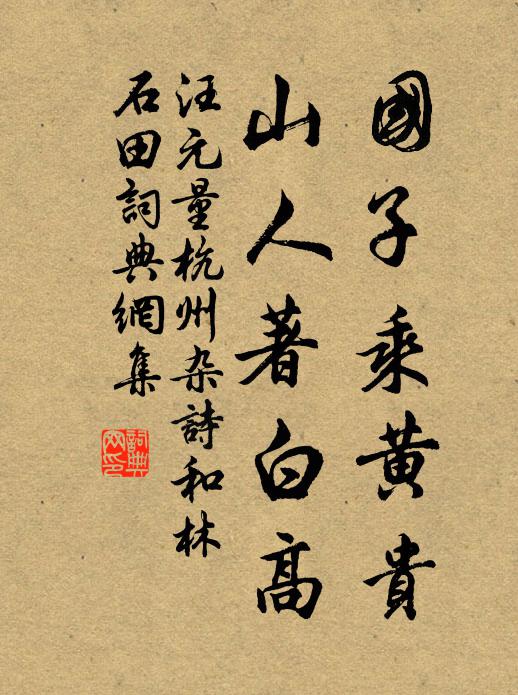 國子乘黃貴
山人著白高
汪元量杭州杂詩和林
石田詞典網集
詞典网印